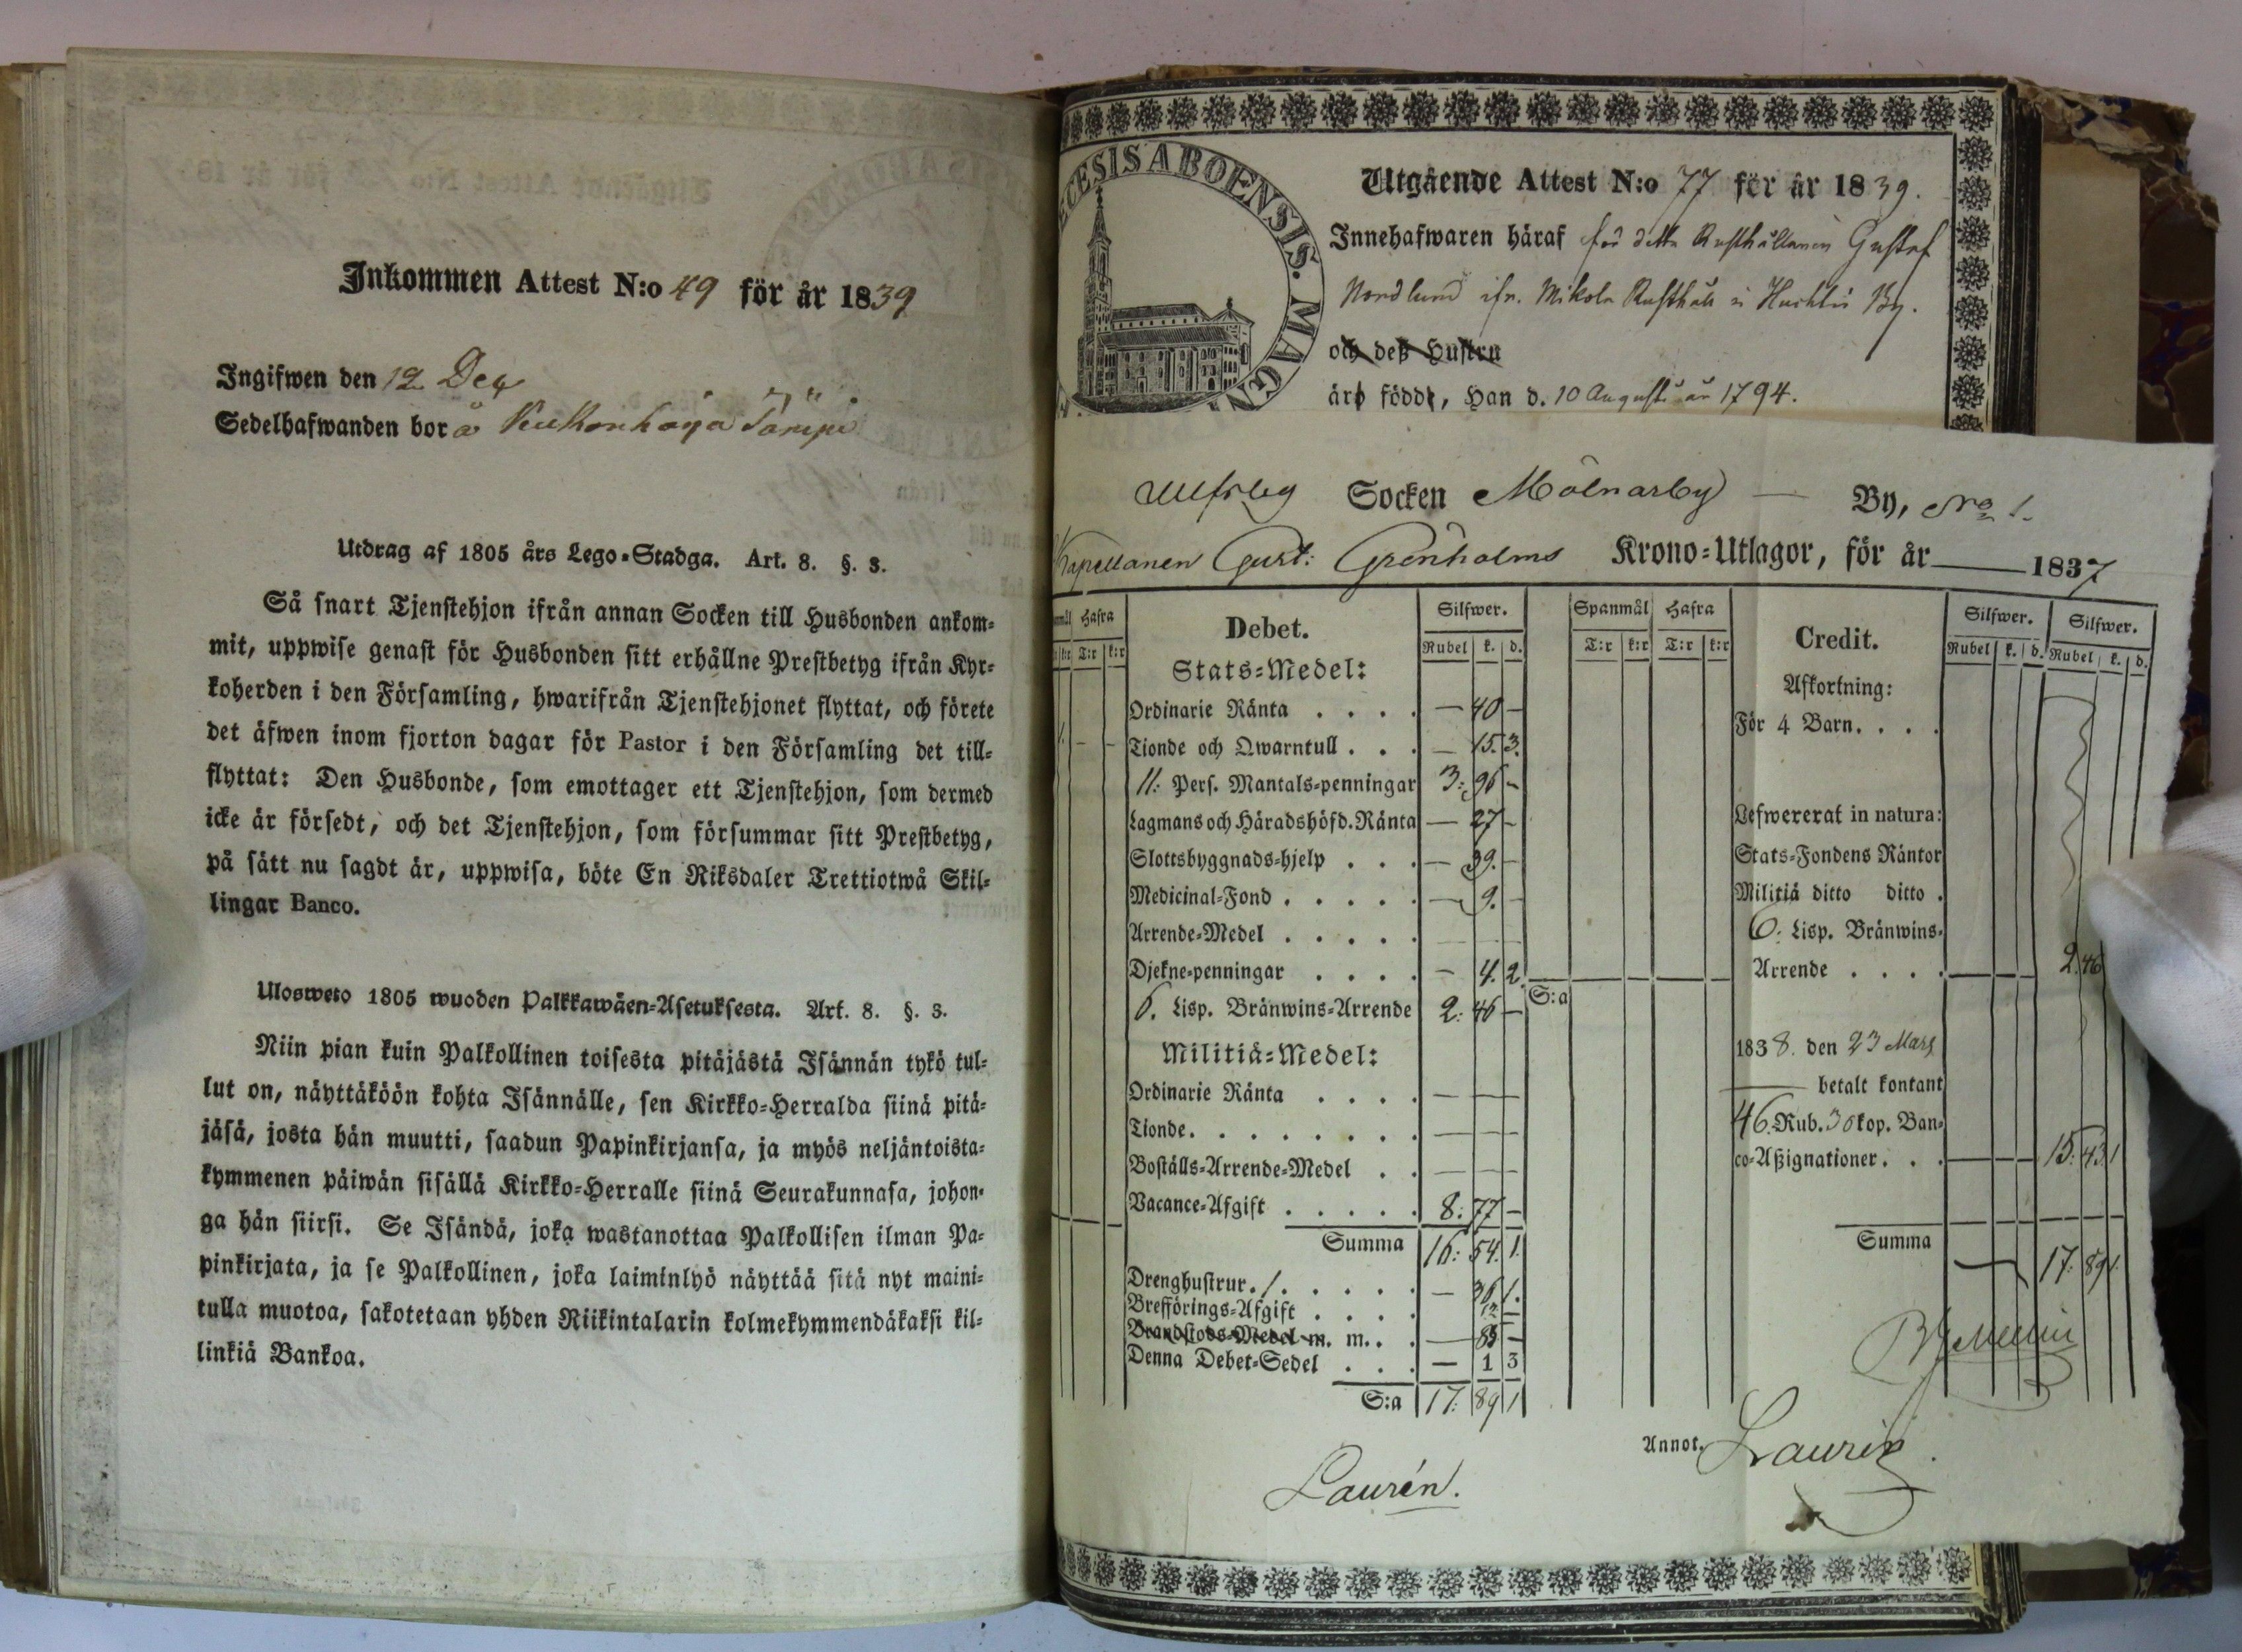 Inkommen Attest N:o 49 för år 1839
Ingifwen den 12 Dec
Sedelhafwanden bor å
Utdrag af 1805 års Lego-Stadga. Art. 8. §. 3.
Så snart Tjenstehjon ifrån annan Socken till Husbonden ankom-
mit, uppwise genast för Husbonden sitt erhållne Prestbetyg ifrån Kyr-
koherden i den Församling, hwarifrån Tjenstehjonet flyttat, och förete
det äfwen inom fjorton dagar för Pastor i den Församling det till-
flyttat: Den Husbonde, som emottager ett Tjenstehjon, som dermed
icke är försedt, och det Tjenstehjon, som försummar sitt Prestbetyg,
på sätt nu sagdt är, uppwisa, böte En Riksdaler Trettiotwå Skil-
lingar Banco.
Ulosweto 1805 wuoden Palkkawäen-Asetuksesta. Art. 8. §. 3.
Niin pian kuin Palkollinen toisesta pitäjästä Isännän tykö tul-
lut on, näyttäköön kohta Isännälle, sen Kirkko-Herralda siinä pitä-
jäsä, josta hän muutti, saadun Papinkirjansa, ja myös neljäntoista-
kymmenen päiwän sisällä Kirkko-Herralle siinä Seurakunnasa, johon-
ga hän siirsi. Se Isändä, joka wastanottaa Palkollisen ilman Pa-
pinkirjata, ja se Palkollinen, joka laiminlyö näyttää sitä nyt maini-
tulla muotoa, sakotetaan yhden Riikintalarin kolmekymmendäkaksi kil-
linkiä Bankoa.
CESIS ABOENSIS. MAG
Utgående Attest N:o 77 för år 1839.
Innehafwaren häraf för detta Rusthållaren Gustaf
Nordlund ifr. Mikola Rusthåll i By.
och deß Hustru
äro född, Han d. 10 Augusti år 1794.
Ulfsby Socken Mölnarby — By, No 1.
Kapellanen Gust: Grönholms Krono-Utlagor, för år 1837
Hafra Debet. Silfwer. Spanmål Hafra Credit. Silfwer. Silfwer.
T:r k:r Rubel k. d. T:r k:r T:r k:r Rubel k. d. Rubel k. d.
Stats-Medel: Afkortning:
Ordinarie Ränta . . . . — 40 — För 4 Barn. . . .
Tionde och Qwarntull . . . — 15. 3.
11: Pers. Mantals-penningar 3: 96 —
Lagmans och Häradshöfd. Ränta — 27 — Lefwererat in natura:
Slottsbyggnads-hjelp . . . — 39. — Stats-Fondens Räntor
Medicinal-Fond . . . . . — 9. — Militiä ditto ditto .
Arrende-Medel . . . . . 6: Lisp. Bränwins-
Djekne-penningar . . . . — 4. 2. Arrende . . . . 2. 46
6. Lisp. Bränwins-Arrende 2: 46 — S:a
Militiä-Medel: 1838. den 23 Mars
Ordinarie Ränta . . . . — — — betalt kontant
Tionde. . . . . . . . — — — 46. Rub. 30 kop. Ban-
Boställs-Arrende-Medel . . — — — co-Aßignationer. . . 15. 43. 1
Vacance-Afgift . . . . . 8: 77 —
Summa 16: 54. 1. Summa 17: 89 1.
Drenghustrur. 1. . . . . . — 36 1.
Brefförings-Afgift . . . . 12 —
Brandstods-Medel m. m. . . — 85 —
Denna Debet-Sedel . . . — 1 3
S:a 17: 89 1
Annot. Laurén
Laurén.